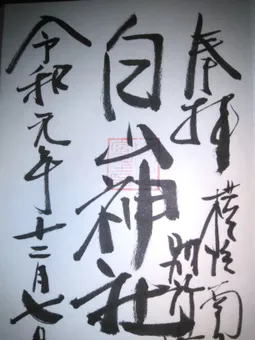 奉拝
横浜南
別所
白山神社
令和元年十二月七日